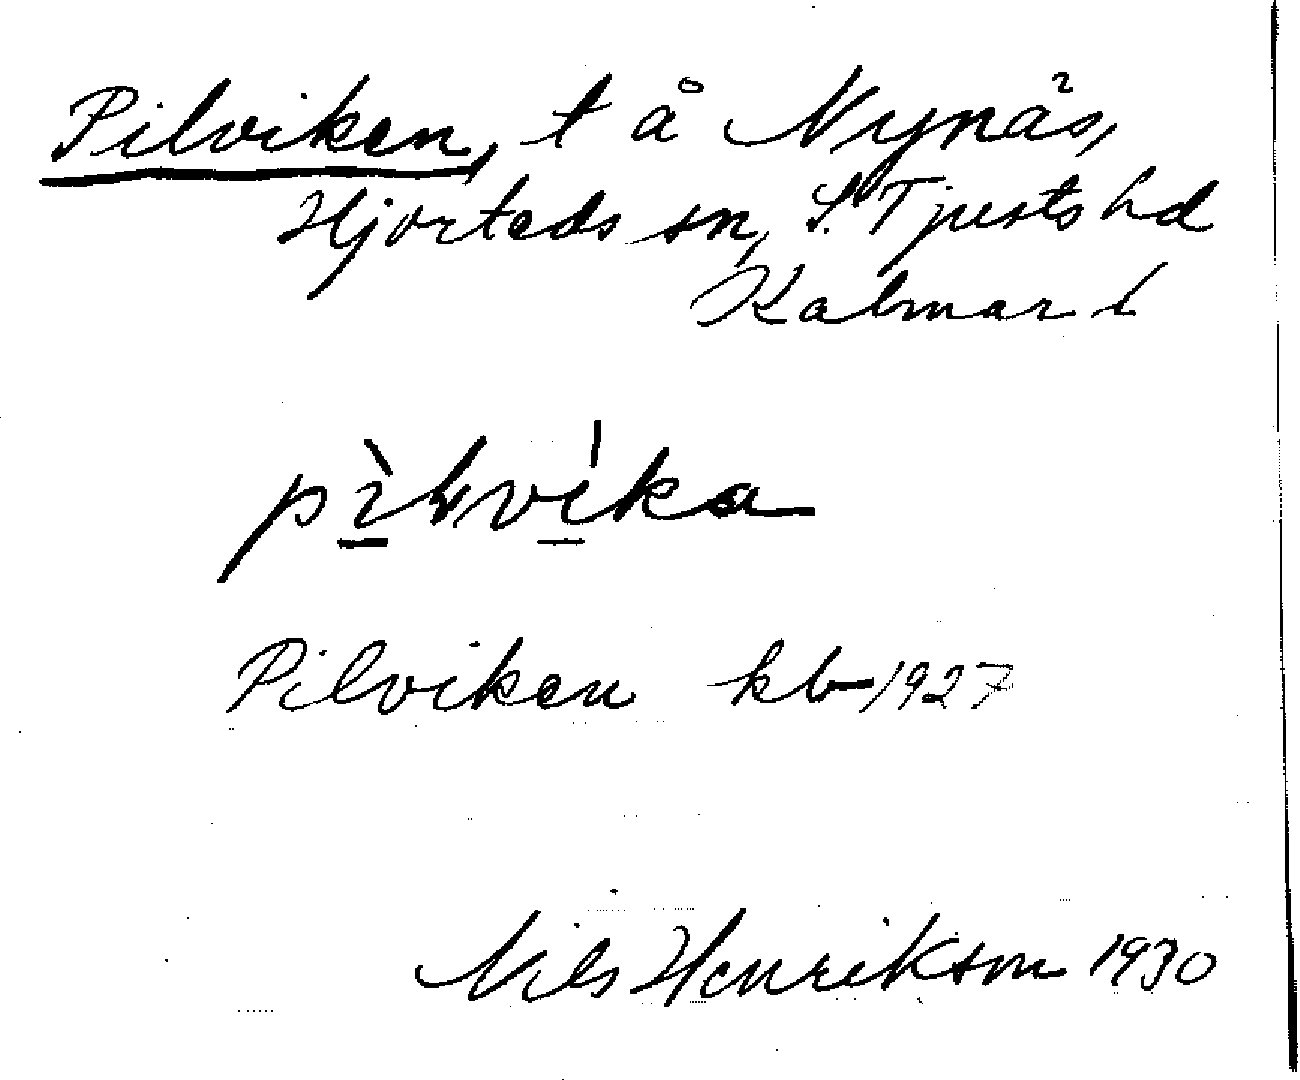 Pilviken, t å Nynäs,
Hjorteds sn, S. Tjusts hd
Kalmar l
pìlvíka
Pilviken kb 1927
Nils Henrikson 1930